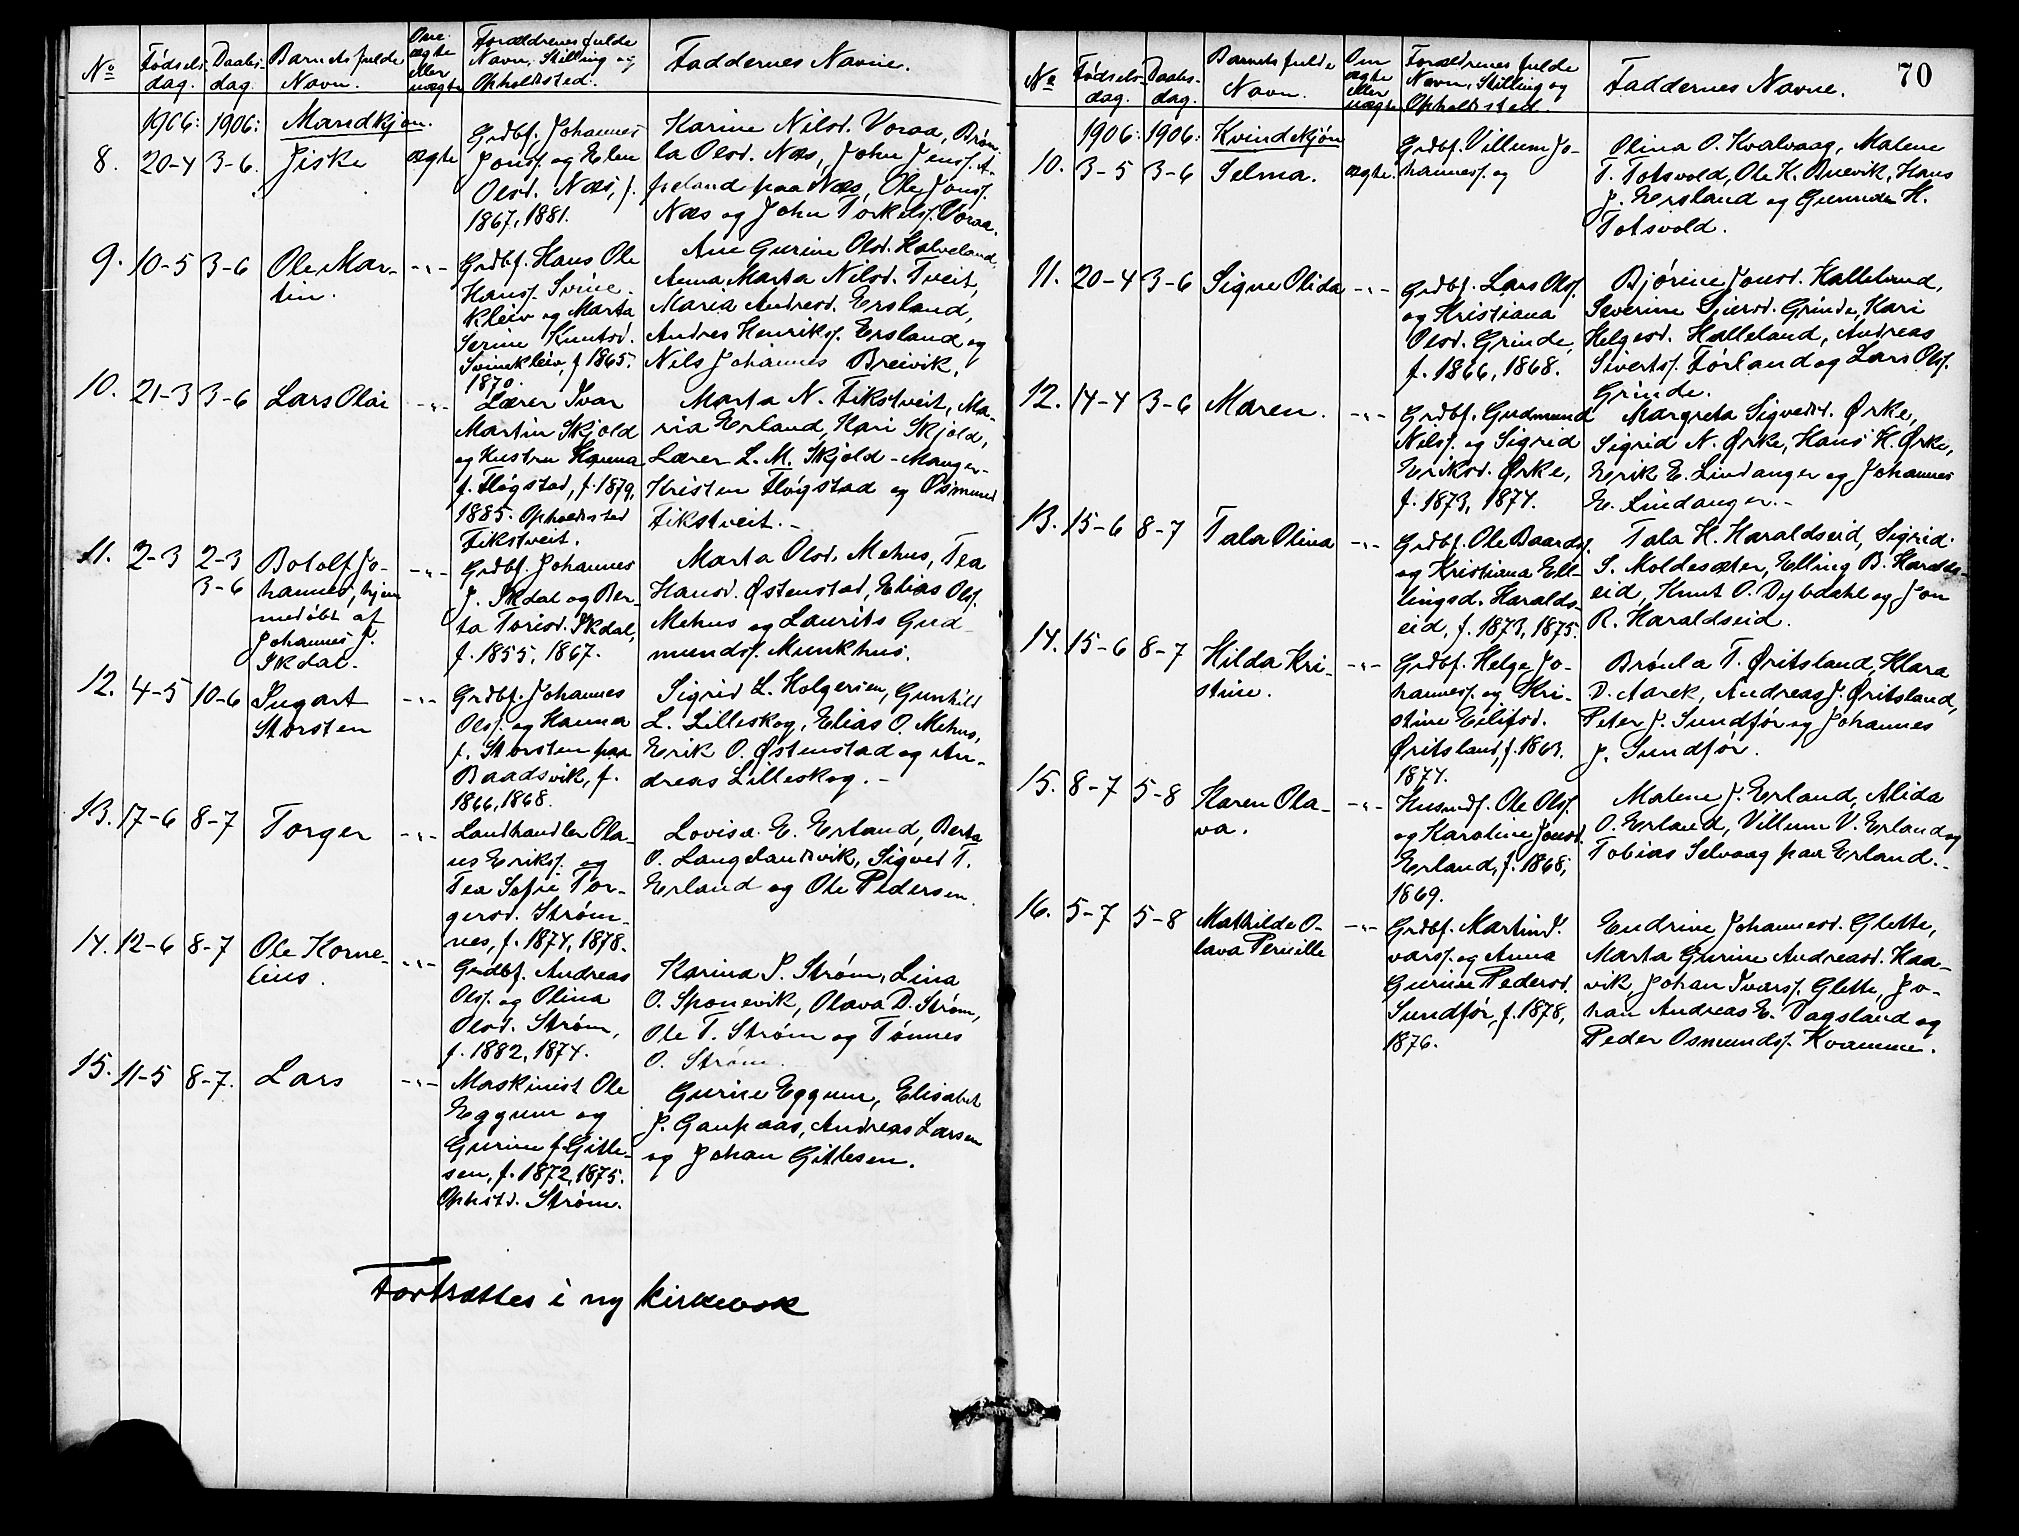 No
Fødsels-
dag.
Daabs-
dag.
Barnets fulde
Navn.
Om
ægte
eller
uægte
Forældrenes fulde
Navn, Stilling og
Opholdssted.
Faddernes Navne.
1906: 1906: Mandkjøn.
8. 20-4 3-6. Jiske ægte
Grdbf. Johannes
Jonsf. og Elen
Olsd. Næs, f.
1867, 1881.
Karine Nilsd. Voraa, Brøn-
la Olsd. Næs, John Jensf. A-
peland paa Næs, Ole Jonsf.
Næs og John Torkelsf. Voraa.
9. 10-5 3-6 Ole Mar-
tin. -"-
Grdbf. Hans Ole
Hansf. Svine-
kleiv og Marta
Serine Knutsd.
Svinekleiv, f. 1865.
1870.
Ane Gurine Olsd. Halveland,
Anna Marta Nilsd. Tveit,
Maria Andresd. Ersland,
Andres Henriksf. Ersland og
Nils Johannes Breivik.
10. 21-3 3-6 Lars Olai -"-
Lærer Ivar
Martin Skjold
og Hustru Hanna
f. Fløgstad, f. 1879,
1885. Opholdssted
Fikstveit.
Marta N. Fikstveit, Ma-
ria Erland, Kari Skjold,
Lærer L. M. Skjold-Manger-
Kristen Fløgstad og Osmund
Fikstveit.-
11. 2-3 2-3
3-6
Botolf Jo-
hannes, hjem
medøbt af
Johannes J.
Ikdal. -"-
Grdbf. Johannes
J. Ikdal og Ber-
ta Torisd. Ikdal,
f. 1855, 1867.
Marta Olsd. Mehus, Tea
Hansd. Østenstad, Elias Olsf.
Mehus og Laurits Gud-
mundsf. Munkhus.
12. 4-5 10-6 Ingart
Storsten -"-
Grdbf. Johannes
Olsf. og Hanna
f. Storsten paa
Baadsvik, f.
1866, 1868.
Sigrid L. Holgersen, Gunhild
L. Lilleskog, Elias O. Mehus,
Erik O. Østenstad og An-
dreas Lilleskog.-
13. 17-6 8-7 Torger -"-
Landhandler Ola-
us Eriksf. og
Tea Sofie Tor-
gersd. Strøm-
nes, f. 1874, 1878.
Lovise E. Erland, Berta
O. Langelandsvik, Sigved T.
Erland og Ole Pedersen.
14. 12-6 8-7 Ole Korne-
lius. -"-
Grdbf. Andreas
Olsf. og Olina
Olsd. Strøm,
f. 1882, 1874.
Karina P. Strøm, Lina
O. Sponevik, Olava D. Strøm,
Ole T. Strøm og Tønnes
O. Strøm.
15. 11-5 8-7. Lars -"-
Maskinist Ole
Eggum og
Gurine f. Gitle-
sen, f. 1872, 1875.
Ophstd. Strøm.
Gurine Eggum, Elisabet
J. Gaupaas, Andreas Larsen
og Johan Gitlesen.
Fortsættes i ny kirkebok
70
No
Fødsels-
dag.
Daabs-
dag.
Barnets fulde
Navn.
Om
ægte
eller
uægte
Forældrenes fulde
Navn, Stilling og
Opholdssted.
Faddernes Navne.
1906: 1906: Kvindekjøn
10. 3-5 3-6 Selma. ægte.
Grdbf. Villum Jo-
hannesf. og
Olina O. Kvalvaag, Malene
T. Totsvold, Ole K. Buevik, Hans
J. Ersland og Gunnder H.
Totsvold.
11. 20-4 3-6 Signe Olida -"-
Grdbf. Lars Olsf.
og Kristiana
Olsd. Grinde,
f. 1866, 1868.
Bjørine Jonsd. Halleland,
Severine Sjursd. Grinde, Kari
Helgesd. Halleland, Andreas
Sivertsf. Førland og Lars Olsf.
Grinde.
12. 14-4 3-6 Maren. -"-
Grdbf. Gudmund
Nilsf. og Sigrid
Eriksd. Ørke,
f. 1873, 1874.
Margreta Sigvedsd. Ørke,
Sigrid N. Ørke, Hans H. Ørke,
Erik E. Lindanger og Johannes
E. Lindanger.-
13. 15-6 8-7 Tala Olina -"-
Grdbf. Ole Baardsf.
og Kristiana Ell-
lingsd. Haralds-
eid, f. 1873, 1875.
Tala H. Haraldseid, Sigrid
S. Moldesæter, Elling B. Haralds-
eid, Knut O. Dybdahl og Jon
R. Haraldseid.
14. 15-6 8-7 Hilda Kri-
stine. -"-
Grdbf. Helge Jo-
hannesf. og Kri-
stine Eilifsd.
Øritsland, f. 1863.
1874.
Brønla T. Øritsland, Klara
D. Aarek, Andreas J. Øritsland,
Peter J. Sundfør og Johannes
J. Sundfør.
15. 8-7 5-8 Karen Ola-
va. -"-
Husmdf. Ole Olsf.
og Karoline Jonsd.
Erland, f. 1868,
1869.
Malene J. Erland, Alida
O. Erland, Villum V. Erland og
Tobias Selvaag paa Erland.-
16. 5-7 5-8 Mathilde O-
lava Pernille -"-
Grdbf. Martin I-
varsf. og Anna
Gurine Pedersd.
Sundfør, f. 1878,
1876.
Endrine Johannesd. Glette,
Marta Gurine Andreasd. Haa-
vik, Johan Ivarsf. Glette, Jo-
han Andreas E. Dagsland og
Peder Osmundsf. Kvamme.